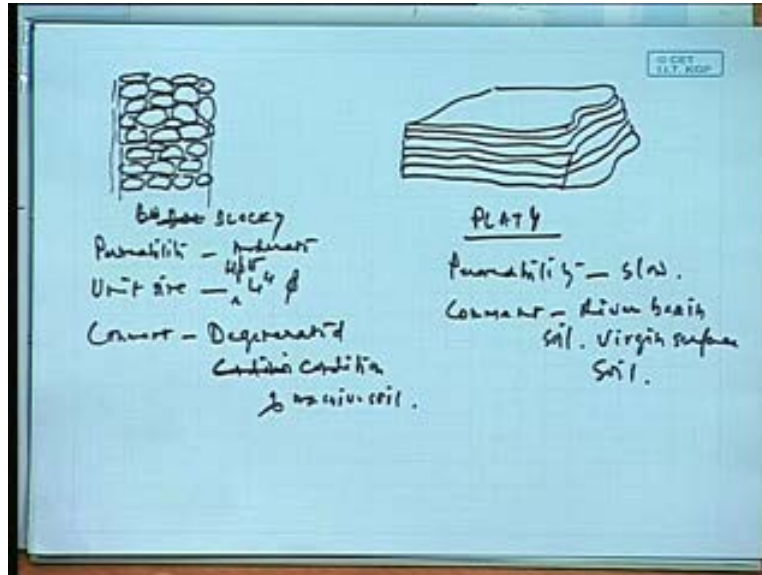 © CET
I.I.T. KGP
BLOCKY
Permeability – Moderate
Unit size – 4" φ
Comment – Degenerated
Condition
of massive soil.
PLATY
Permeability – Slow.
Comment – River basin
soil. Virgin surface
Soil.